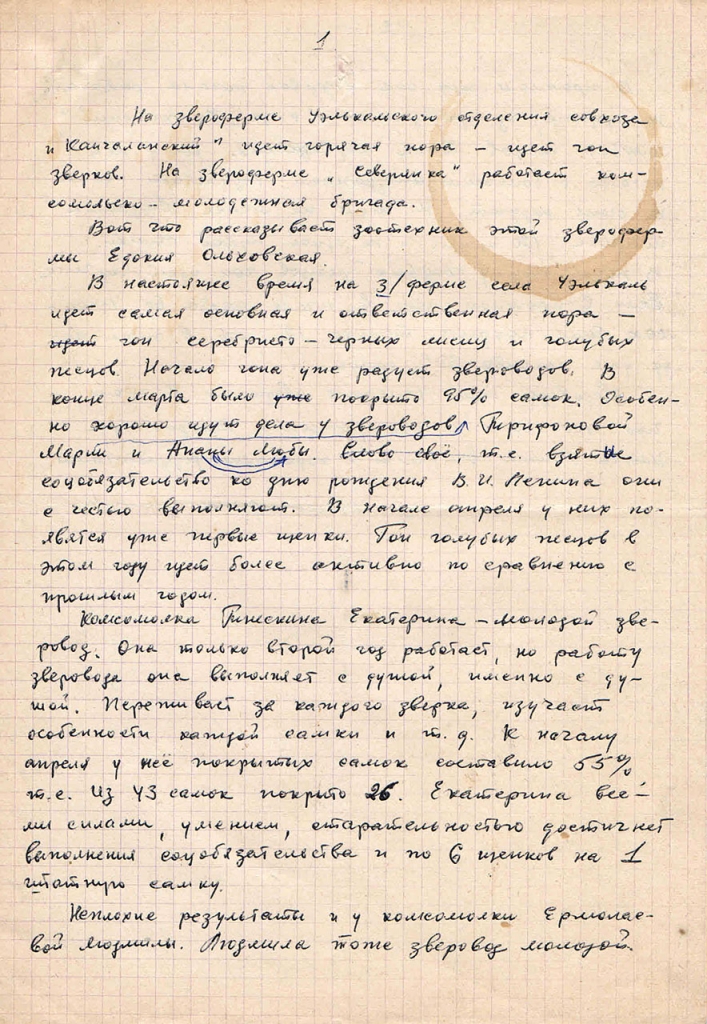 1
На звероферме Уэлькальского отделения совхоза
„Канчаланский" идет горячая пора – идет гон
зверков. На звероферме „Северянка" работает ком-
сомольско-молодежная бригада.
Вот что рассказывает зоотехник этой зверофер-
мы Едокия Ольховская.
В настоящее время на з/ферме села Уэлькаль
идет самая основная и ответственная пора –
идет гон серебристо-черных лисиц и голубых
песцов. Начало гона уже радует звероводов. В
конце марта было уже покрыто 95% самок. Особен-
но хорошо идут дела у звероводов Трифоновой
Марты и Любы. Слово своё, т.е. взятые
соцобязательство ко дню рождения В.И. Ленина они
с честью выполняют. В начале апреля у них по-
явятся уже первые щенки. Гон голубых песцов в
этом году идет более активно по сравнению с
прошлым годом.
Комсомолка Екатерина – молодой зве-
ровод. Она только второй год работает, но работу
зверовода она выполняет с душой, именно с ду-
шой. Переживает за каждого зверка, изучает
особенности каждой самки и т.д. К началу
апреля у неё покрытых самок составило 55%
т.е. из 43 самок покрыто 26. Екатерина все-
ми силами, умением, старательностью достигнет
выполнения соцобязательства и по 6 щенков на 1
штатную самку.
Неплохие результаты и у комсомолки Ермолае-
вой Людмилы. Людмила тоже зверовод молодой.